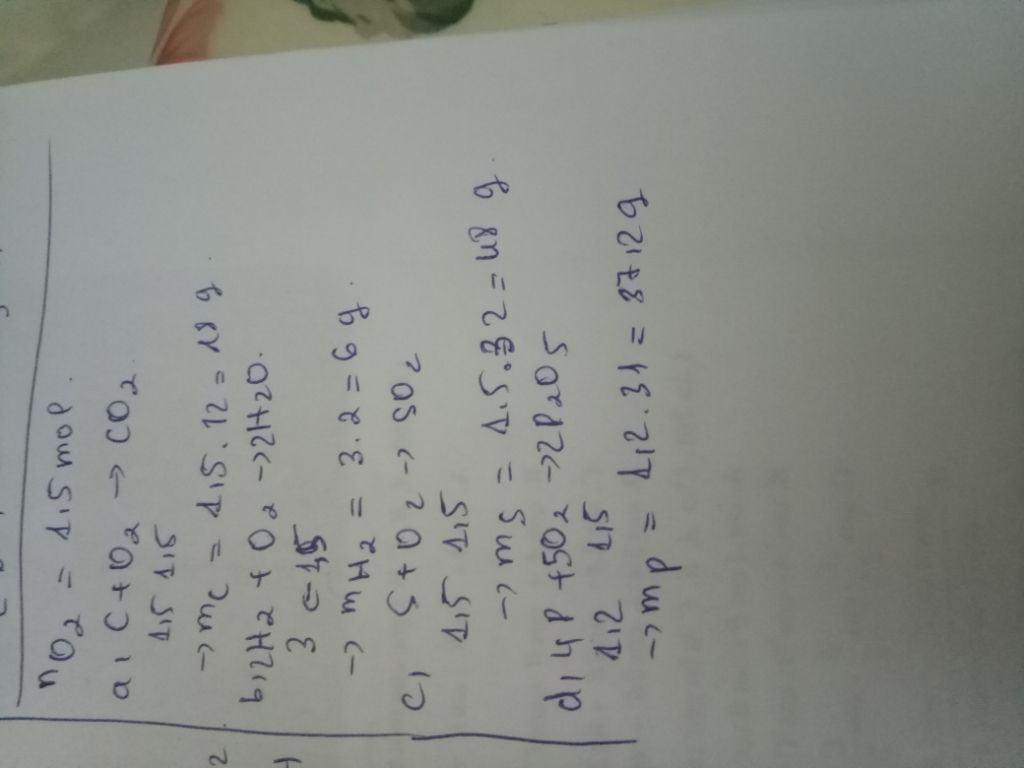 nO2 = 1,5 mol.
a, C + O2 → CO2
1,5 1,5
→ mC = 1,5.12 = 18 g.
b, 2H2 + O2 → 2H2O.
3 ← 1,5
→ mH2 = 3.2 = 6 g.
c, S + O2 → SO2
1,5 1,5
→ mS = 1,5.32 = 48 g.
d, 4P + 5O2 → 2P2O5
1,2 1,5
→ mP = 1,2.31 = 37,2g